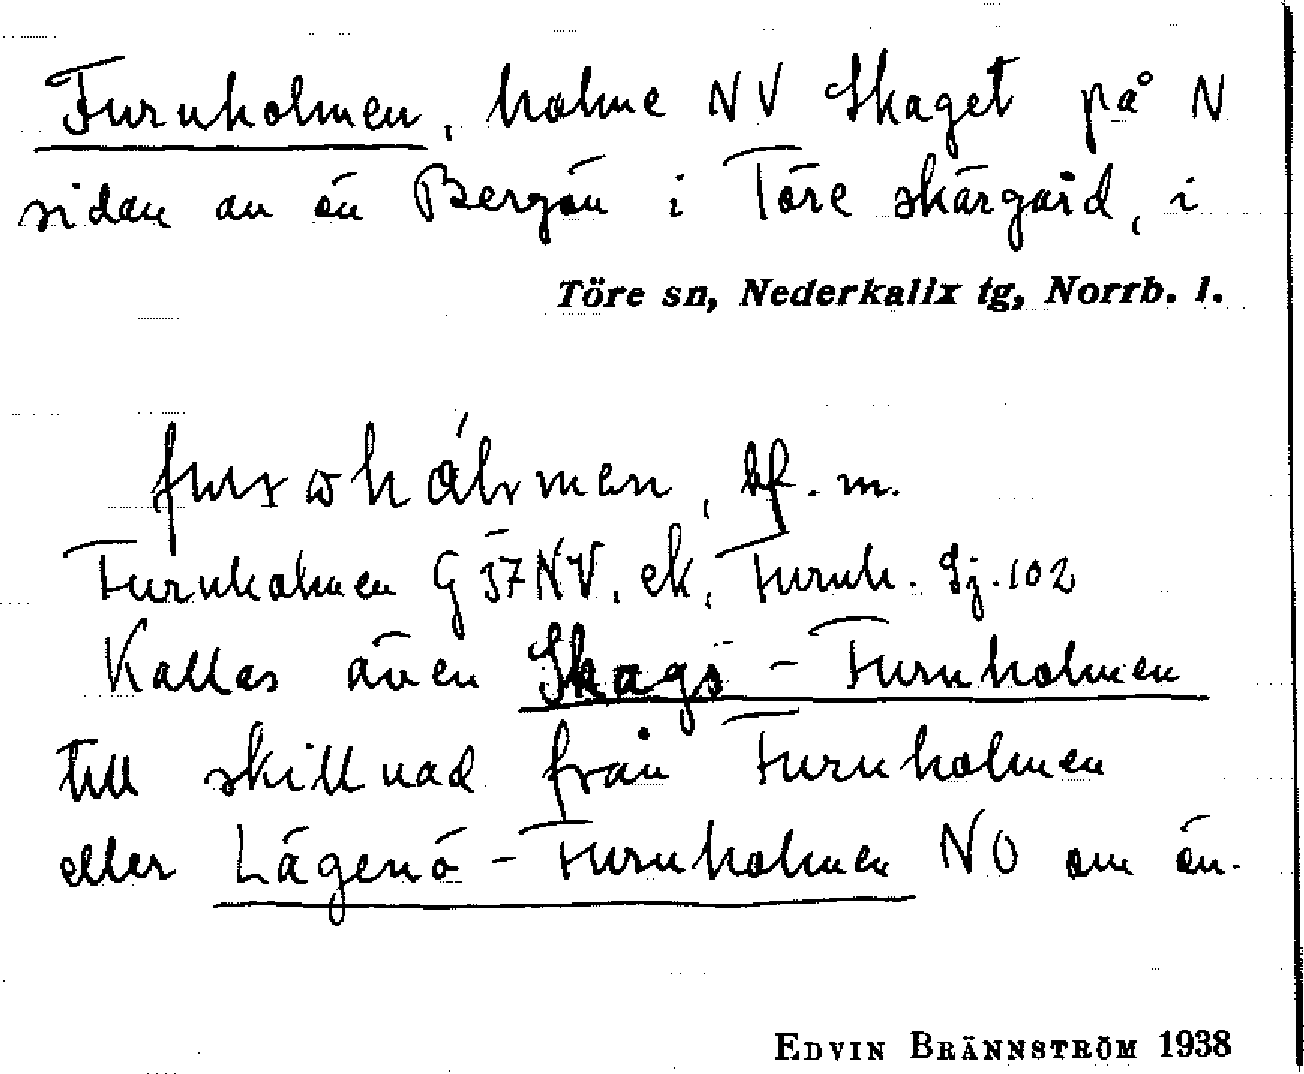 Furuholmen, holme NV Skaget på N
sidan av ön Bergön i Töre skärgård, i
Töre sn, Nederkalix tg, Norrb. l.
df. m.
Furuholmen G 37 NV. ek. Furuh. Sj. 102
Kallas även Skags-Furuholmen
till skillnad från Furuholmen
eller Lägenö-Furuholmen NO om ön.
EDVIN BRÄNNSTRÖM 1938